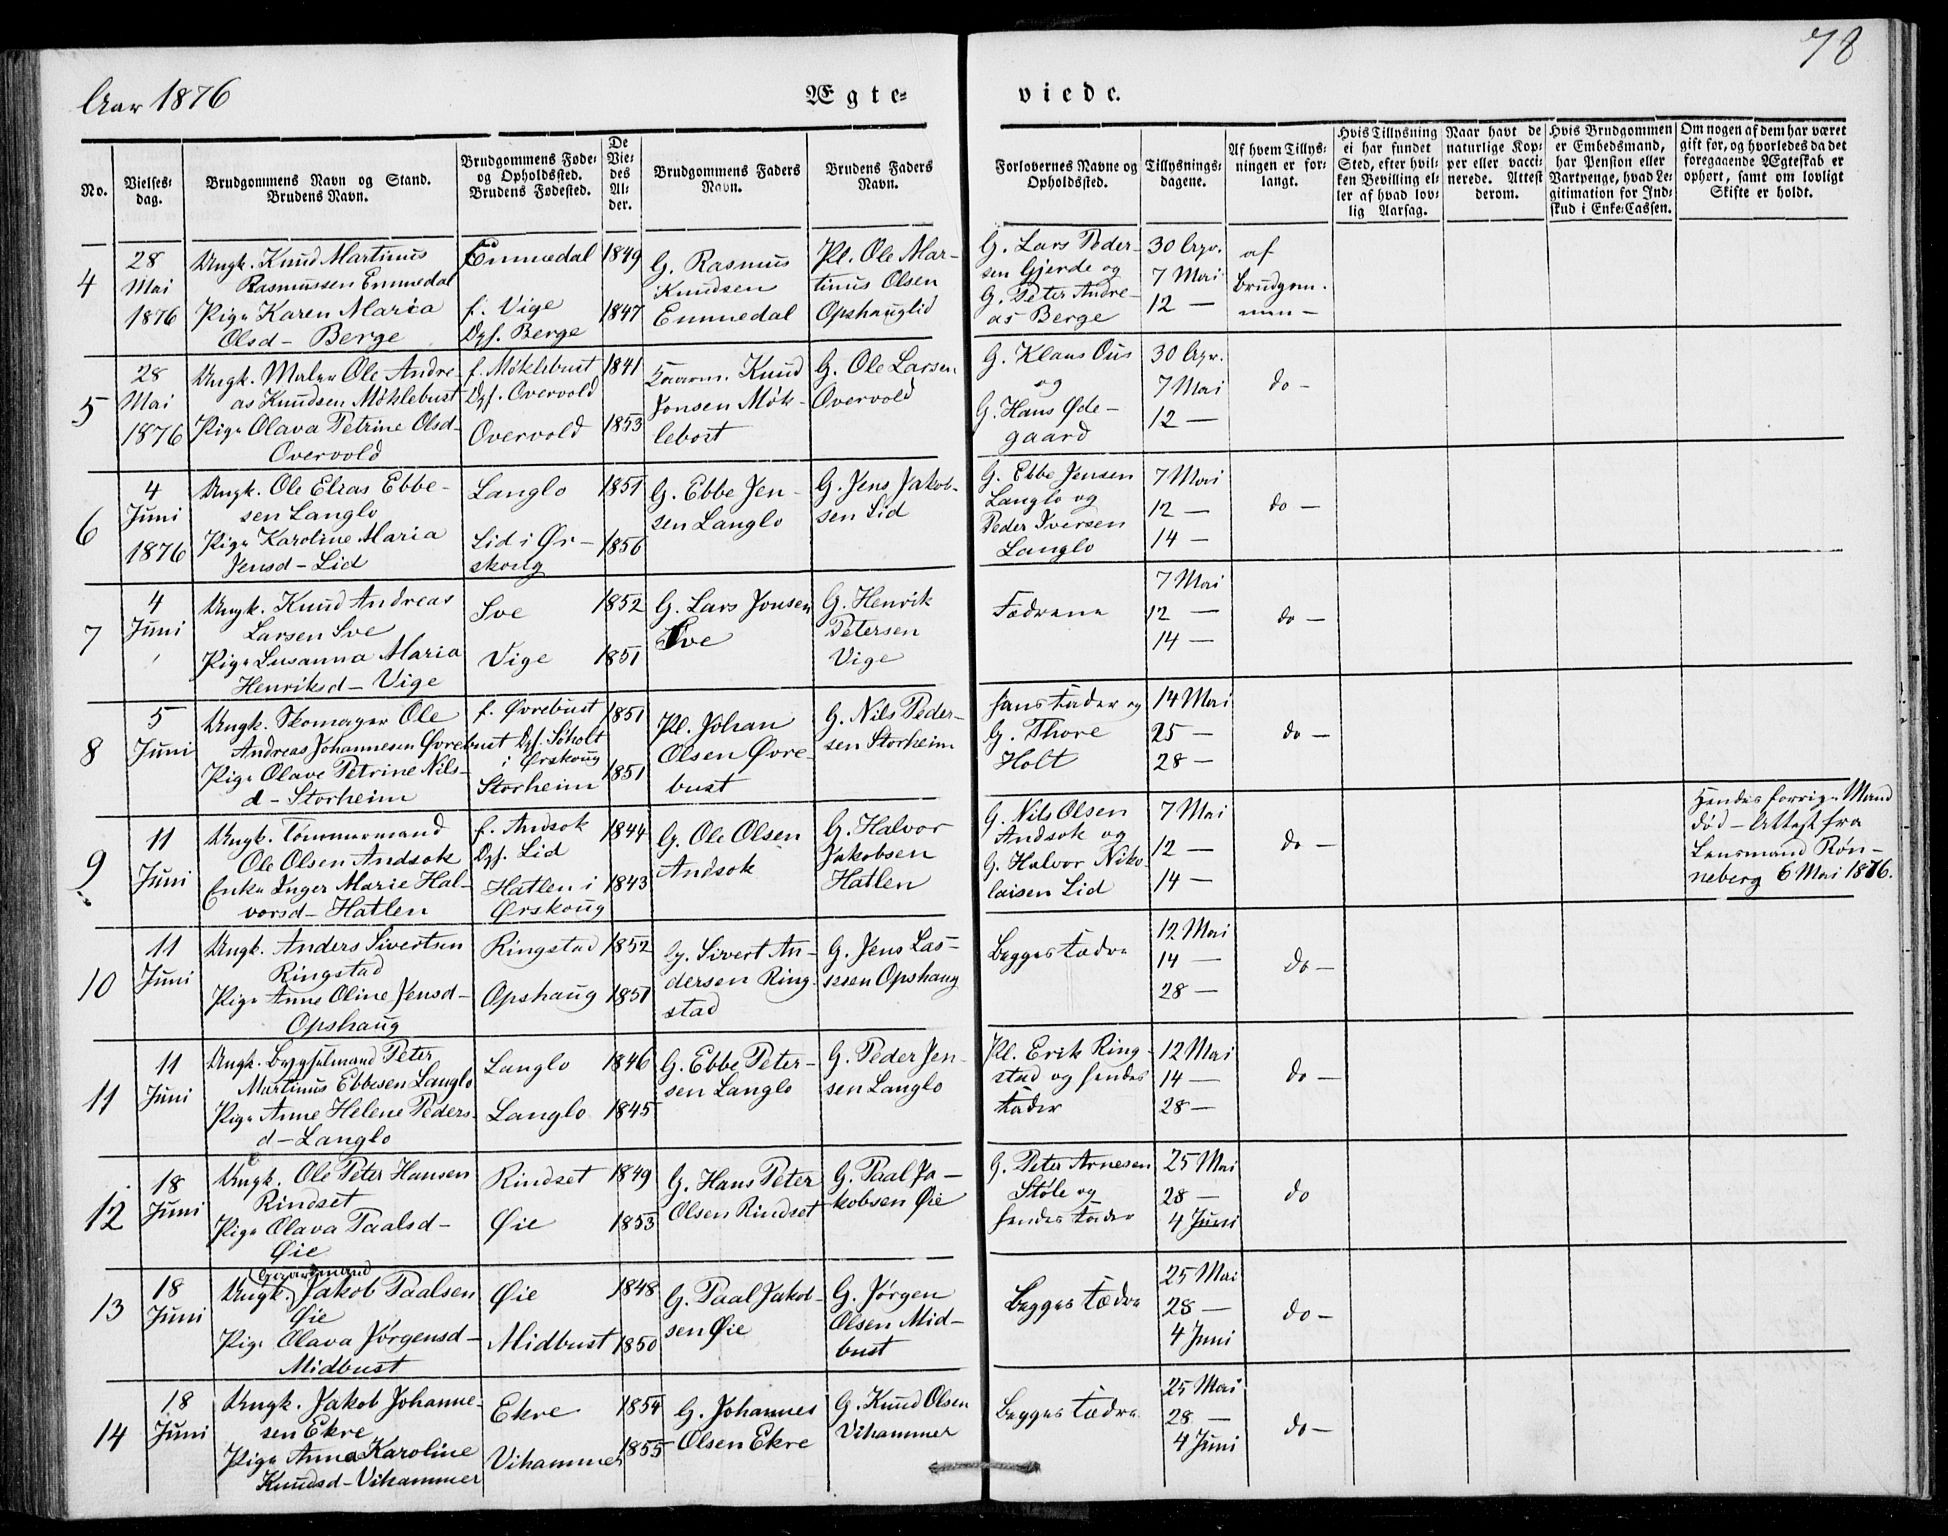 78
Aar 1876
Ægte-
viede.
No.
Vielses-
dag.
Brudgommens Navn og Stand.
Brudens Navn.
Brudgommens Føde-
og Opholdssted.
Brudens Fødested.
De
Vie-
des
Al-
der.
Brudgommens Faders
Navn.
Brudens Faders
Navn.
Forlovernes Navne og
Opholdssted.
Tillysnings-
dagene.
Af hvem Tillys-
ningen er for-
langt.
Hvis Tillysning
ei har fundet
Sted, efter hvil-
ken Bevilling el-
ler af hvad lov-
lig Aarsag.
Naar havt de
naturlige Kop-
per eller vacci-
nerede. Attest
derom.
Hvis Brudgommen
er Embedsmand,
har Pension eller
Vartpenge, hvad Le-
gitimation for Ind-
skud i Enke-Cassen.
Om nogen af dem har været
gift for, og hvorledes da det
foregaaende Ægteskab er
ophørt, samt om lovligt
Skifte er holdt.
4
28
Mai
1876
Ungk. Knud Martinus
Rasmussen Emmedal
Pige Karen Maria
Olsd- Berge
Emmedal
f. Vige
Opf. Berge
1849
1847
G. Rasmus
Knudsen
Emmedal
Pl. Ole Mar-
tinus Olsen
Opshauglid
G. Lars Peder-
sen Gjerde og
G. Peter Andre-
as Berge
30 Apr.
7 Mai
12 —
af
Brudgom-
men —
5
28
Mai
1876
Ungk. Maler Ole Andre-
as Knudsen Møklebust
Pige Olava Petrine Olsd-
Overvold
f. Møklebust
Opf. Overvold
Overvold
1841
1853
Gaarm. Knud
Jonsen Møk-
lebost
G. Ole Larsen
Overvold
G. Klaus Ous
og
G. Hans Øde-
gaard
30 Apr.
7 Mai
12 —
do —
6
4
Juni
1876
Ungk. Ole Elias Ebbe-
sen Langlo
Pige Karoline Maria
Jensd- Lid
Langlo
Lid i Ør-
skoug
1851
1856
G. Ebbe Jen-
sen Langlo
G. Jens Jakob-
sen Lid
G. Ebbe Jensen
Langlo og
Peder Iversen
Langlo
7 Mai
12 —
14 —
do —
7
4
Juni
Ungk. Knud Andreas
Larsen Sve
Pige Susanna Maria
Henriksd- Vige
Sve
Vige
1852
1851
G. Lars Jonsen
Sve
G. Henrik
Petersen
Vige
Fædrene
7 Mai
12 —
14 —
do —
8
5
Juni
Ungk. Skomager Ole
Andreas Johannesen Øvrebust
Pige Olave Petrine Nils-
d- Storheim
f. Øvrebust
Opf. Søholt
i Ørskoug
Storheim
1851
1851
Pl. Johan
Olsen Øvre-
bust
G. Nils Peder-
sen Storheim
hans Fader og
G. Thore
Holt
14 Mai
25 —
28 —
do —
9
11
Juni
Ungk. Tømmermand
Ole Olsen Andsok
Enke Inger Marie Hal-
vorsd- Hatlen
f. Andsok
Opf. Lid
Hatlen i
Ørskoug
1844
1843
G. Ole Olsen
Andsok
G. Halvor
Jakobsen
Hatlen
G. Nils Olsen
Andsok og
G. Halvor Niko-
laisen Lid
7 Mai
12 —
14 —
do —
Hendes forrige Mand
død - Attest fra
Lensmand Røn-
neberg 6 Mai 1876.
10
11
Juni
Ungk. Anders Sivertsen
Ringstad
Pige Anne Oline Jensd-
Opshaug
Ringstad
Opshaug
1852
1851
G. Sivert An-
dersen Ring-
stad
G. Jens Las-
sesen Opshaug
Begges Fædre
12 Mai
14 —
28 —
do —
11
11
Juni
Ungk. Bygselmand Peter
Martinus Ebbesen Langlo
Pige Anne Helene Peders
d- Langlo
Langlo
Langlo
1846
1845
G. Ebbe Peter-
sen Langlo
G. Peder Jen-
sen Langlo
Pl. Erik Ring-
stad og hendes
Fader
12 Mai
14 —
28 —
do —
12
18
Juni
Ungk. Ole Peter Hansen
Rindset
Pige Olava Paalsd-
Øie
Rindset
Øie
1849
1853
G. Hans Peter
Olsen Rindset
G. Paal Ja-
kobsen Øie
G. Peter Arnesen
Støle og
hendes Fader
25 Mai
28 —
4 Juni
do
13
18
Juni
Gaardmand
Ungk. Jakob Paalsen
Øie
Pige Olava Jørgensd-
Midbust
Øie
Midbust
1848
1850
G. Paal Jakob-
sen Øie
G. Jørgen
Olsen Mid-
bust
Begges Fædre
25 Mai
28 —
4 Juni
do —
14
18
Juni
Ungk. Jakob Johanne-
sen Ekre
Pige Anna Karoline
Knudsd- Vihammer
Ekre
Vihammer
1854
1855
G. Johannes
Olsen Ekre
G. Knud Olsen
Vihammer
Begges Fædre
25 Mai
28 —
4 Juni
do —